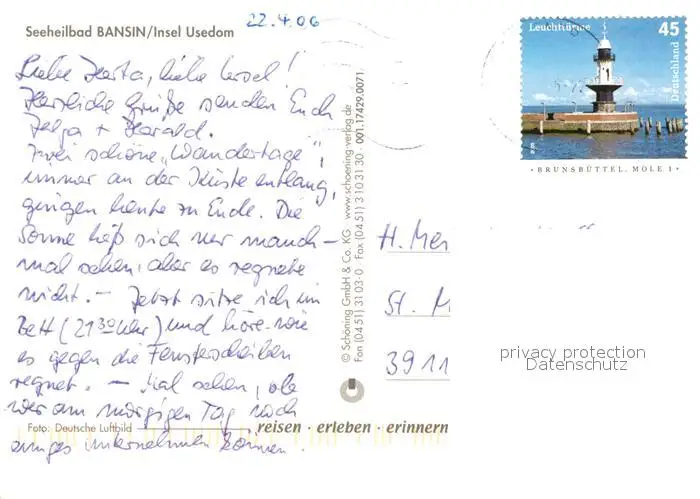 22.4.06
Seeheilbad BANSIN/Insel Usedom
Liebe Herta, liebe Ursel!
Herzliche Grüße senden Euch
Helga + Harald.
Zwei schöne „Wandertage",
immer an der Küste entlang,
gingen heute zu Ende. Die
Sonne ließ sich nur manch-
mal sehen, aber es regnete
nicht. – Jetzt sitze ich im
Bett (21 30 Uhr) und höre wie
es gegen die Fensterscheiben
regnet. – Mal sehen, ob
wir am morgigen Tag noch
einiges unternehmen können.
Foto: Deutsche Luftbild
reisen · erleben · erinnern
© Schöning GmbH & Co. KG www.schoening-verlag.de
Fon (04 51) 31 03-0 Fax (04 51) 3 10 31 30 001.17429.0071
Leuchttürme 45
Deutschland
· BRUNSBÜTTEL, MOLE 1 ·
H. Mei
St. M
3911
privacy protection
Datenschutz